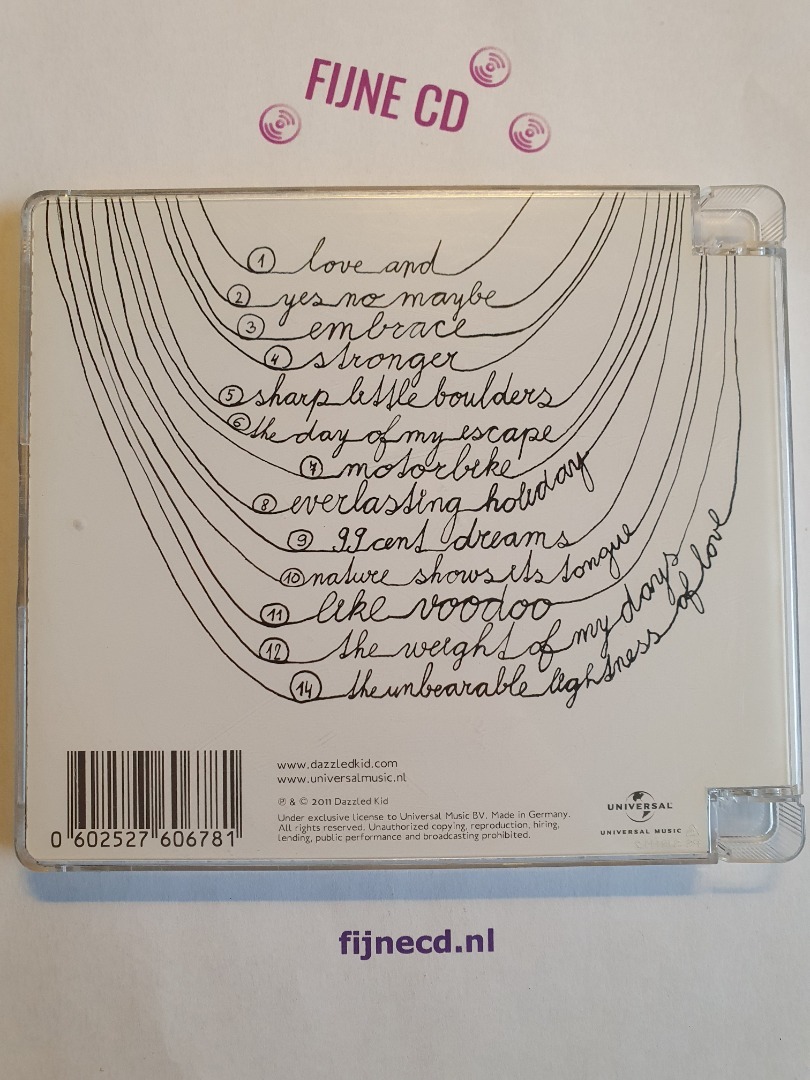 FIJNE CD
1 love and
2 yes no maybe
3 embrace
4 stronger
5 sharp little boulders
6 the day of my escape
7 motorbike
8 everlasting holiday
9 99 cent dreams
10 nature shows its tongue
11 like voodoo
12 the weight of my days
14 the unbearable lightness of love
www.dazzledkid.com
www.universalmusic.nl
℗ & © 2011 Dazzled Kid
Under exclusive license to Universal Music BV. Made in Germany.
All rights reserved. Unauthorized copying, reproduction, hiring,
lending, public performance and broadcasting prohibited.
0 602527 606781
UNIVERSAL
UNIVERSAL MUSIC
fijnecd.nl